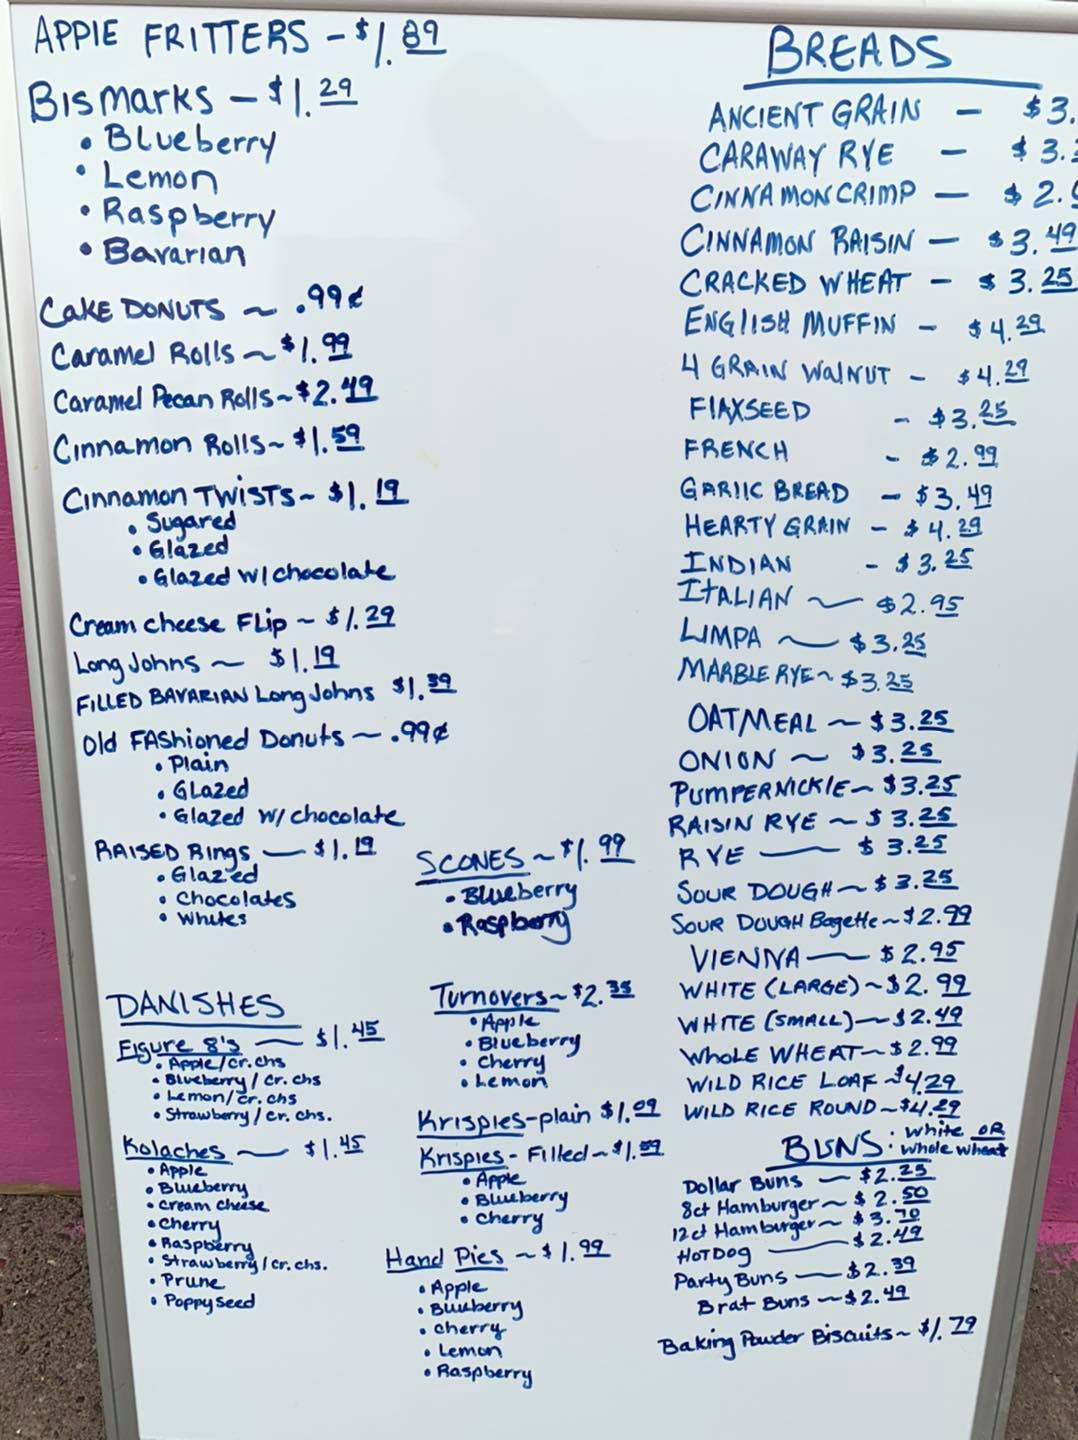 APPlE FRITTERS - $1.89
Bismarks - $1.29
• Blueberry
• Lemon
• Raspberry
• Bavarian
CAKE DONUTS ~ .99¢
Caramel Rolls ~ $1.99
Caramel Pecan Rolls ~ $2.49
Cinnamon Rolls ~ $1.59
Cinnamon TWISTS ~ $1.19
• Sugared
• Glazed
• Glazed w/ chocolate
Cream cheese FLip ~ $1.29
Long Johns ~ $1.19
FILLED BAVARIAN Long Johns $1.39
Old FAShioned Donuts ~ .99¢
• Plain
• GLazed
• Glazed w/ chocolate
RAISED Rings — $1.19
• Glazed
• Chocolates
• Whites
DANISHES
Figure 8's — $1.45
• Apple/cr.chs
• Blueberry/cr. chs
• Lemon/cr. chs
• Strawberry/cr. chs.
Kolaches — $1.45
• Apple
• Blueberry
• cream cheese
• Cherry
• Raspberry
• Strawberry/cr. chs.
• Prune
• Poppyseed
SCONES ~ $1.99
• Blueberry
• Raspberry
Turnovers ~ $2.35
• Apple
• Blueberry
• Cherry
• Lemon
Krispies-plain $1.09
Krispies - Filled ~
• Apple
• Blueberry
• Cherry
Hand Pies ~ $1.99
• Apple
• Bluuberry
• cherry
• Lemon
• Raspberry
BREADS
ANCIENT GRAIN - $3.
CARAWAY RYE - $3.
CINNAMON CRIMP - $2.
CINNAMON RAISIN - $3.49
CRACKED WHEAT - $3.25
ENGLISH MUFFIN - $4.29
4 GRAIN WalNUT - $4.29
FlAXSEED - $3.25
FRENCH - $2.99
GARlIC BREAD - $3.49
HEARTY GRAIN - $4.29
INDIAN - $3.25
ITALIAN ~ $2.95
LIMPA ~ $3.25
MARBLE RYE ~ $3.25
OATMEAL ~ $3.25
ONION ~ $3.25
PUMPERNICKlE ~ $3.25
RAISIN RYE ~ $3.25
RYE — $3.25
SOUR DOUGH ~ $3.25
SOUR DOUGH Bagette ~ $2.99
VIENNA — $2.95
WHITE (LARGE) ~ $2.99
WHITE (SMALL) — $2.49
WHoLE WHEAT ~ $2.99
WILD RICE LOAF ~ $4.29
WILD RICE ROUND ~ $4.29
BUNS : white OR
: whole wheat
Dollar Buns ~ $2.25
8ct Hamburger ~ $2.50
12ct Hamburger ~ $3.70
HOTDOG — $2.49
Party Buns — $2.39
Brat Buns ~ $2.49
Baking Powder Biscuits ~ $1.79